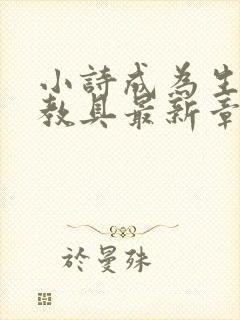 小詩成為生
教具最新章
於曼殊